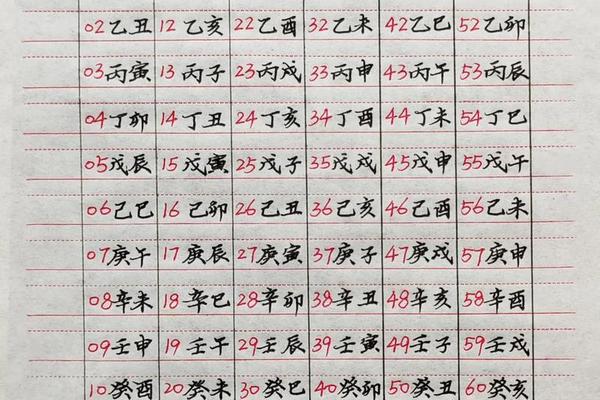 02乙丑 12乙亥 22乙酉 32乙未 42乙巳 52乙卯
03丙寅 13丙子 23丙戌 33丙申 43丙午 53丙辰
04丁卯 14丁丑 24丁亥 34丁酉 44丁未 54丁巳
05戊辰 15戊寅 25戊子 35戊戌 45戊申 55戊午
06己巳 16己卯 26己丑 36己亥 46己酉 56己未
07庚午 17庚辰 27庚寅 37庚子 47庚戌 57庚申
08辛未 18辛巳 28辛卯 38辛丑 48辛亥 58辛酉
09壬申 19壬午 29壬辰 39壬寅 49壬子 59壬戌
10癸酉 20癸未 30癸巳 40癸卯 50癸丑 60癸亥